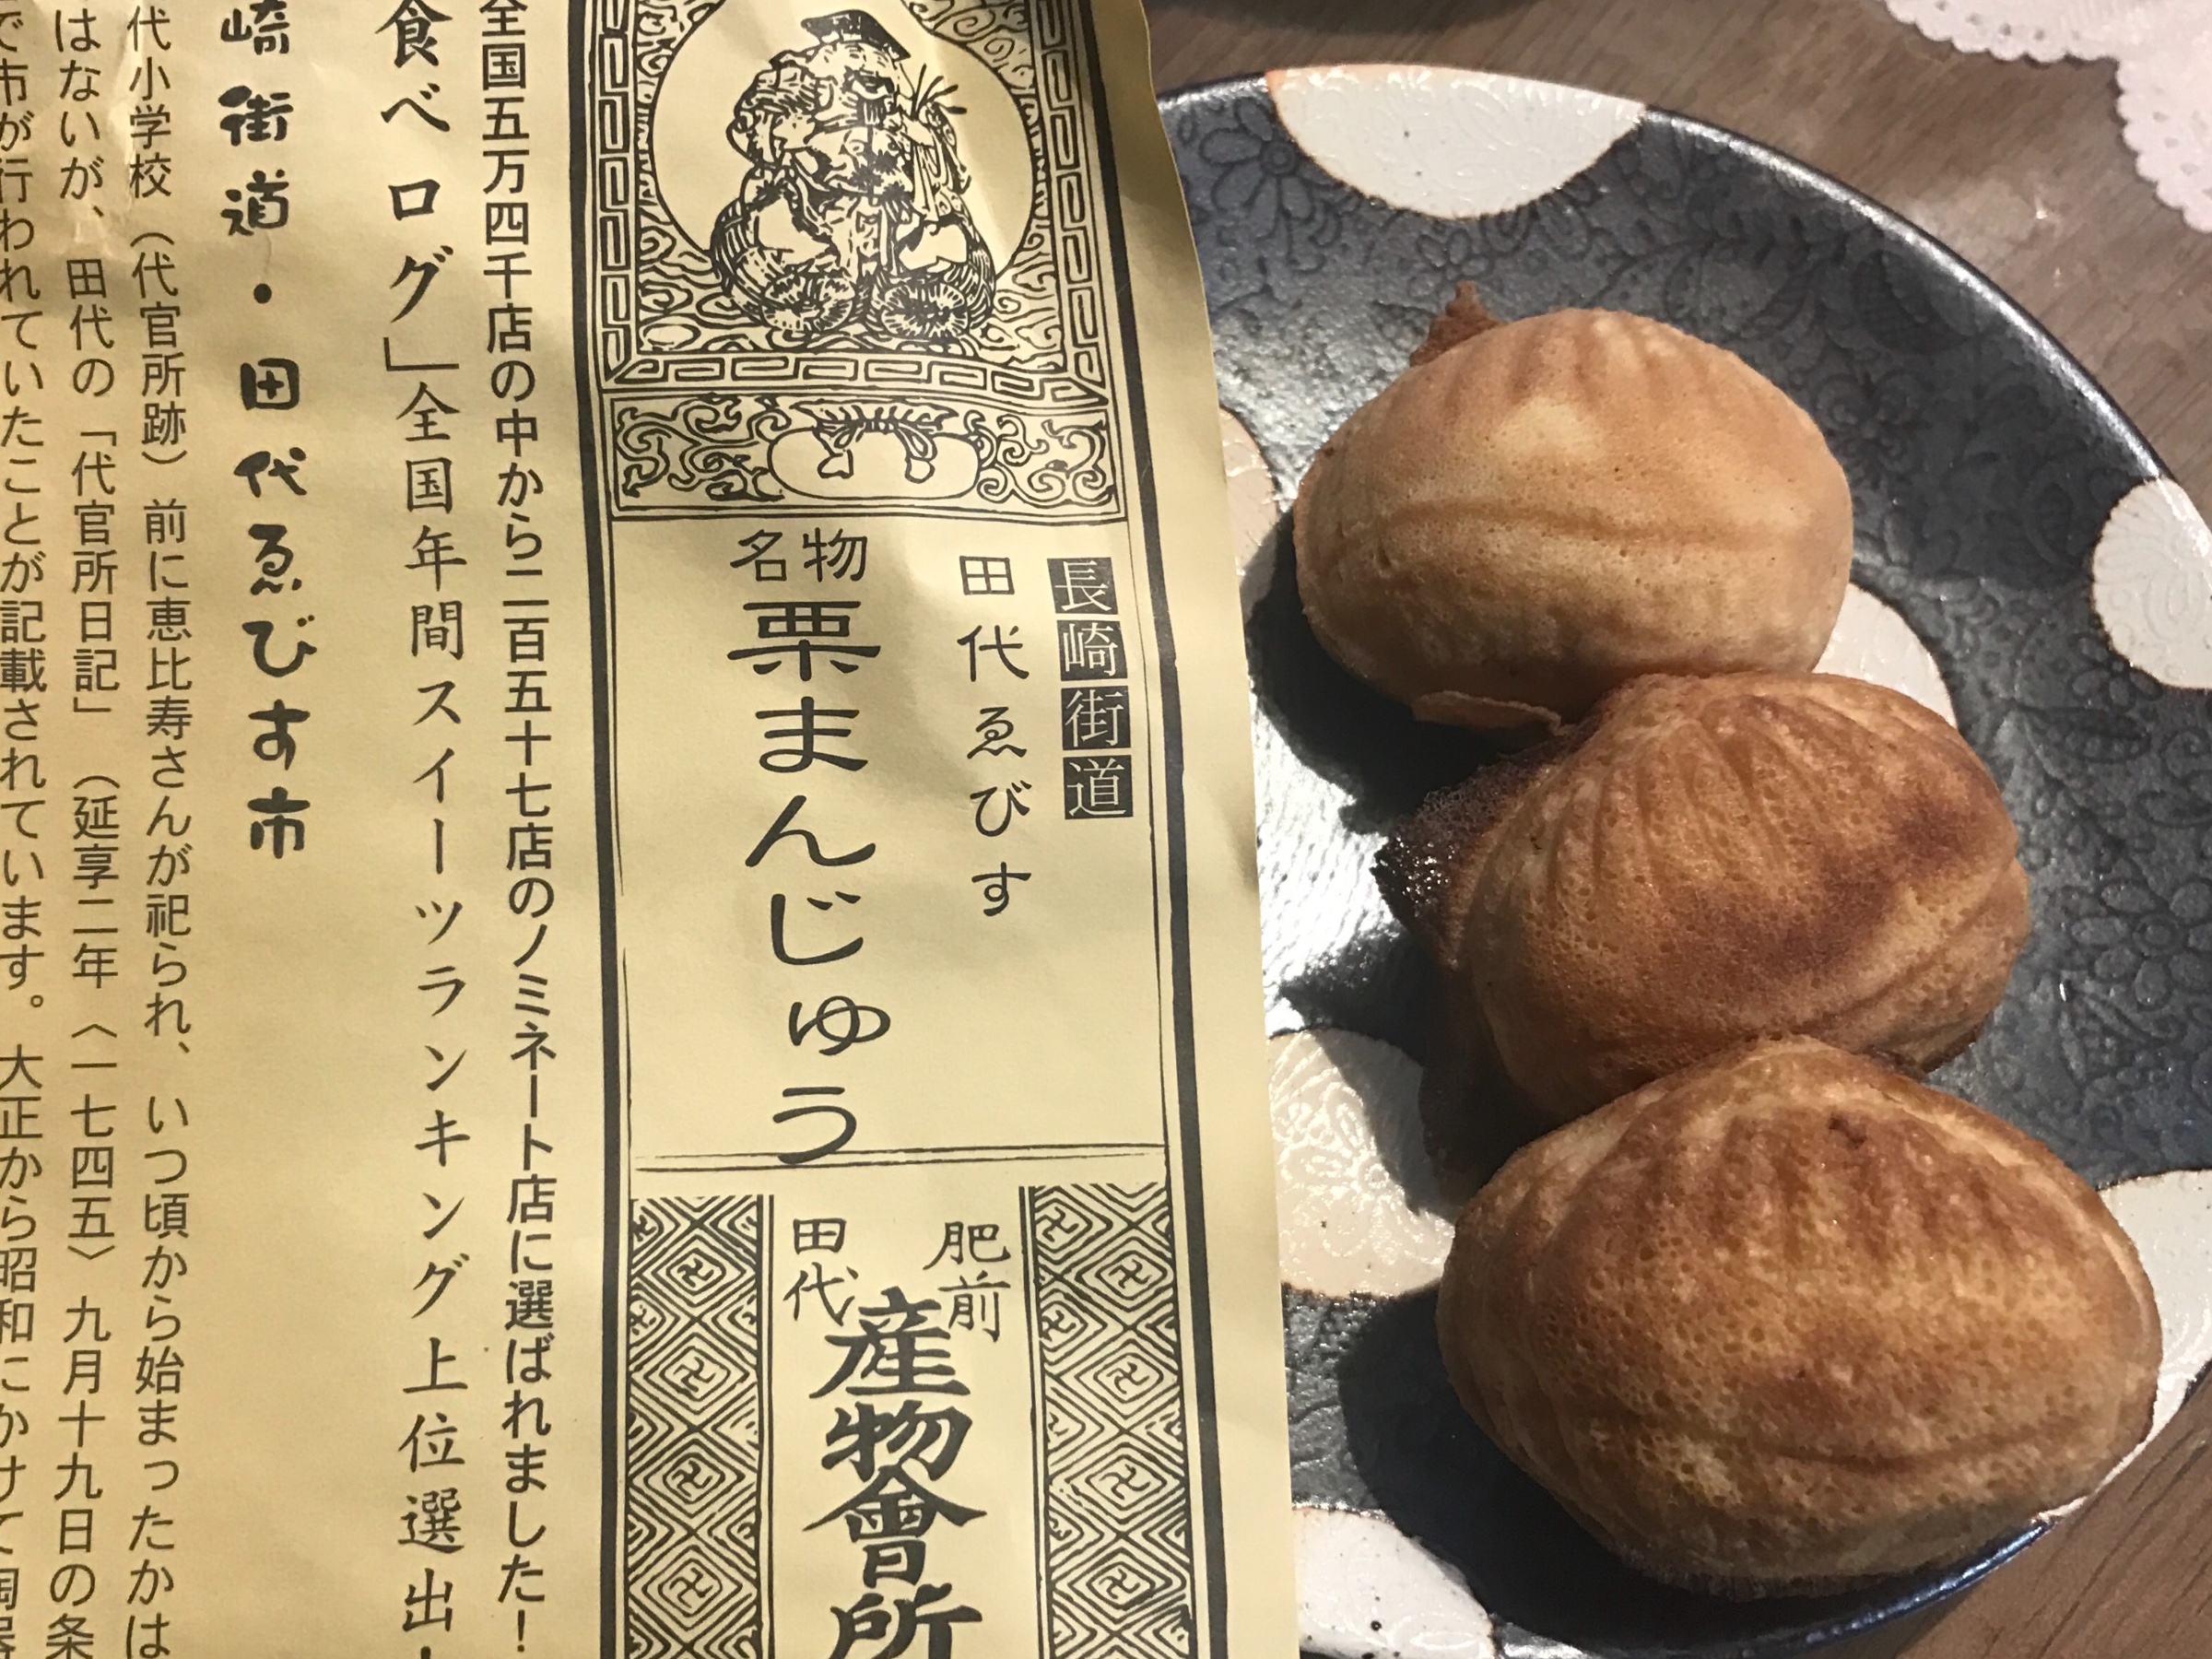 長崎街道
田代ゑびす
名物
栗まんじゅう
肥前
田代
産物會所
全国五万四千店の中から二百五十七店のノミネート店に選ばれました!
食べログ」全国年間スイーツランキング上位選出
崎街道・田代ゑびす市
代小学校(代官所跡)前に恵比寿さんが祀られ、いつ頃から始まったかは
はないが、田代の「代官所日記」(延享二年〈一七四五〉九月十九日の条
で市が行われていたことが記載されています。大正から昭和にかけて陶器